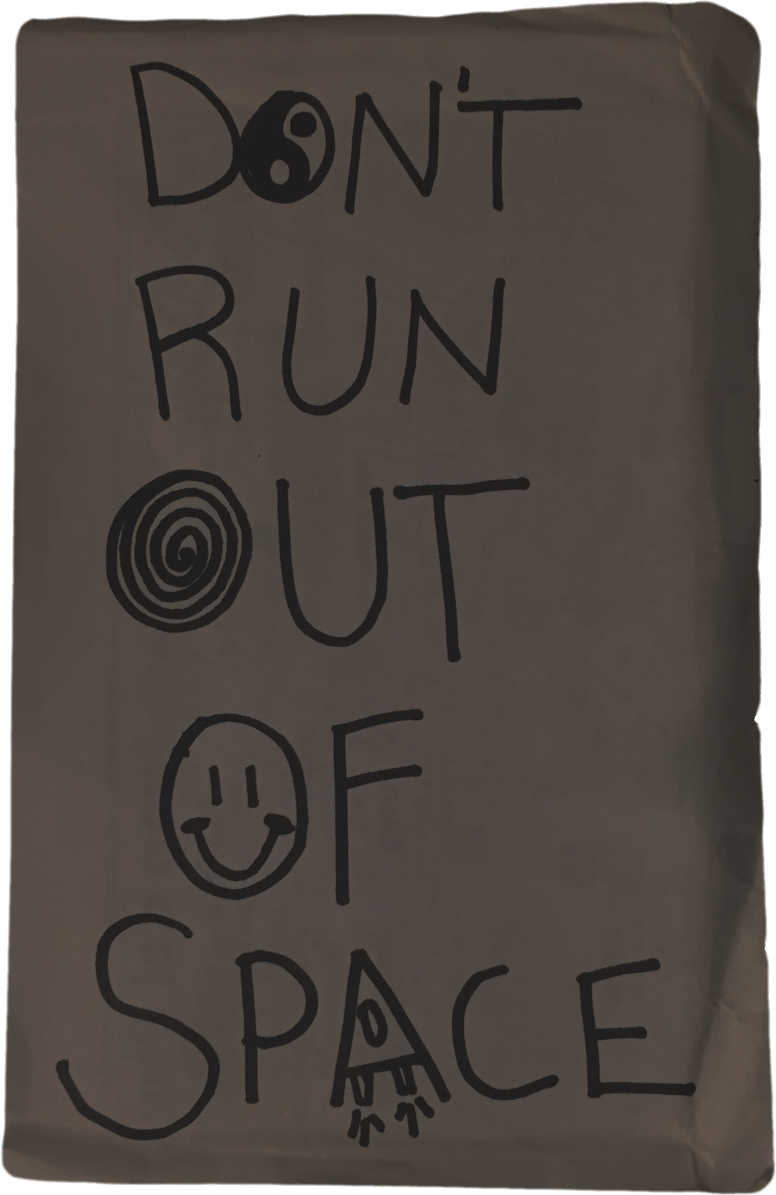 DON'T
RUN
OUT
OF
SPACE